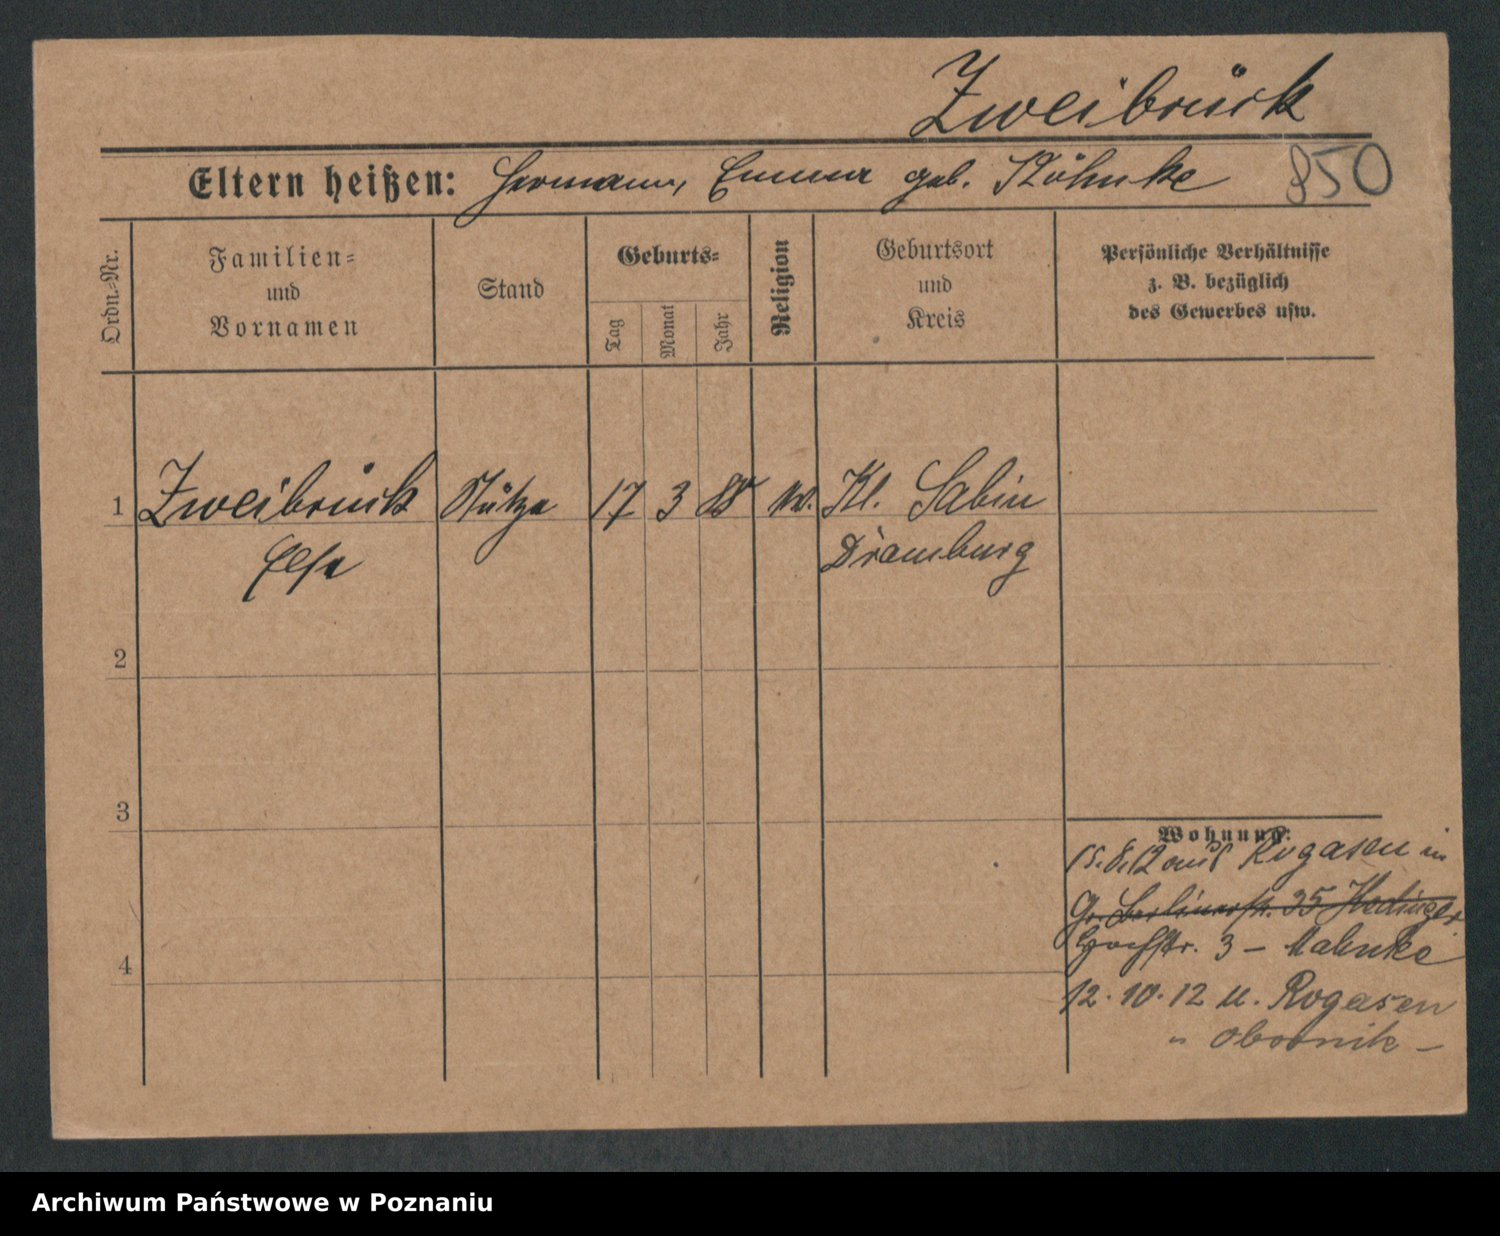 Zweibrück
Eltern heißen: Hermann, Emma geb. Köhnke
850
Ordn.-Nr.
Familien-
und
Vornamen
Stand
Geburts-
Tag
Monat
Jahr
Religion
Geburtsort
und
Kreis
Persönliche Verhältnisse
z. B. bezüglich
des Gewerbes usw.
1 Zweibrück Stütze 17 3 88 ev. Kl. Sabin
Else Dramburg
2
3
4
Wohnung:
15.8.12 aus Rogasen in
Gr. Berlinerstr. 25 Hedinger
Hochstr. 3 – Mahnke
12.10.12 n. Rogasen
" Obornik –
Archiwum Państwowe w Poznaniu